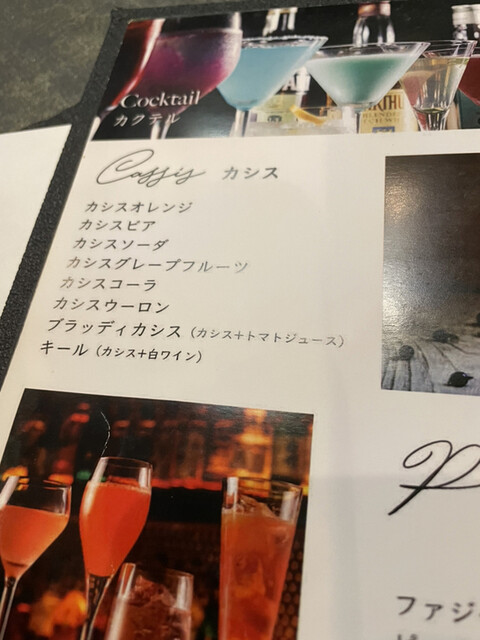 Cocktail
カクテル
Cassis カシス
カシスオレンジ
カシスビア
カシスソーダ
カシスグレープフルーツ
カシスコーラ
カシスウーロン
ブラッディカシス（カシス+トマトジュース）
キール（カシス+白ワイン）